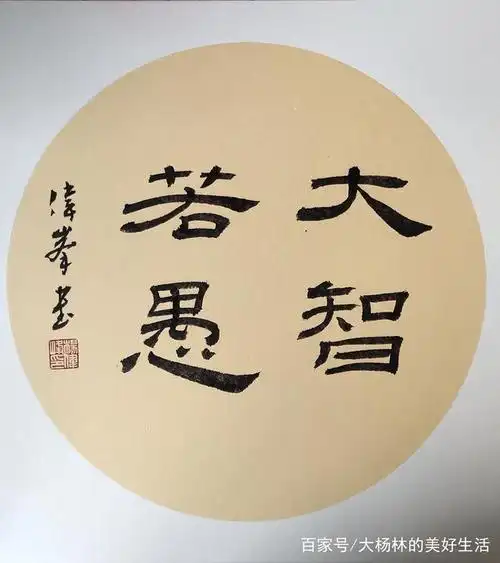 大智
若愚
偉峯書
百家号/大杨林的美好生活